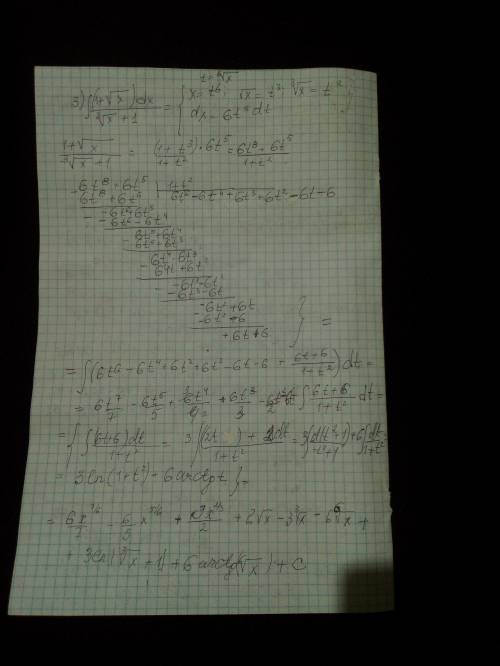 t = ⁶√x
3) ∫ (1+√x)dx / (∛x + 1) = { x = t⁶, √x = t³, ∛x = t²
dx = 6t⁵dt
(1+√x) / (∛x + 1) = (1+t³)·6t⁵ / (1+t²) = (6t⁸+6t⁵) / (1+t²)
6t⁸+6t⁵ | 1+t²
6t⁸+6t⁶ | 6t⁶-6t⁴+6t³+6t²-6t-6
-6t⁶+6t⁵
-6t⁶-6t⁴
6t⁵+6t⁴
6t⁵+6t³
6t⁴-6t³
6t⁴+6t²
-6t³-6t²
-6t³-6t
-6t²+6t
-6t²-6
+6t+6 } =
= ∫(6t⁶ - 6t⁴ + 6t³ + 6t² - 6t - 6 + (6t+6)/(1+t²)) dt =
= 6t⁷/7 - 6t⁵/5 + 6t⁴/4 + 6t³/3 - 6t²/2 - 6t + ∫ (6t+6)/(1+t²) dt =
= { ∫ (6t+6)dt / (1+t²) = 3 ∫ ((2t) + 2)dt / (1+t²) = 3∫ d(t²+1)/(t²+1) + 6∫ dt/(1+t²) =
= 3ln(1+t²) - 6arctg t }
= 6x^(7/6)/7 - 6/5 x^(5/6) + 3x^(2/3)/2 + 2√x - 3∛x - 6⁶√x +
+ 3ln|∛x + 1| + 6 arctg(⁶√x) + C